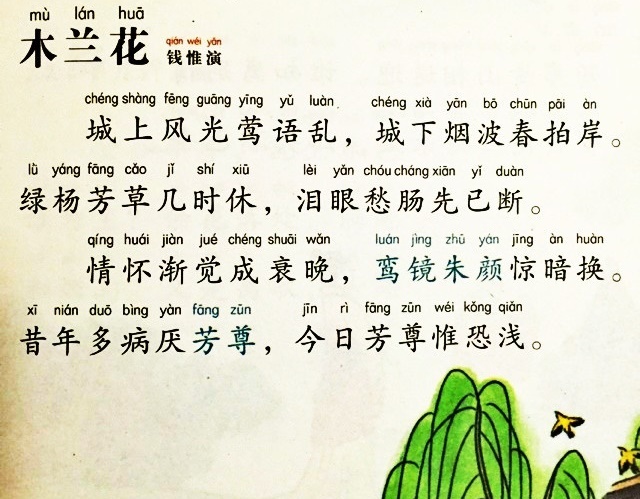 mù lán huā
木兰花 qián wéi yǎn 钱惟演
chéng shàng fēng guāng yīng yǔ luàn chéng xià yān bō chūn pāi àn
城上风光莺语乱，城下烟波春拍岸。
lǜ yáng fāng cǎo jǐ shí xiū lèi yǎn chóu cháng xiān yǐ duàn
绿杨芳草几时休，泪眼愁肠先已断。
qíng huái jiàn jué chéng shuāi wǎn luán jìng zhū yán jīng àn huàn
情怀渐觉成衰晚，鸾镜朱颜惊暗换。
xī nián duō bìng yàn fāng zūn jīn rì fāng zūn wéi kǒng qiǎn
昔年多病厌芳尊，今日芳尊惟恐浅。